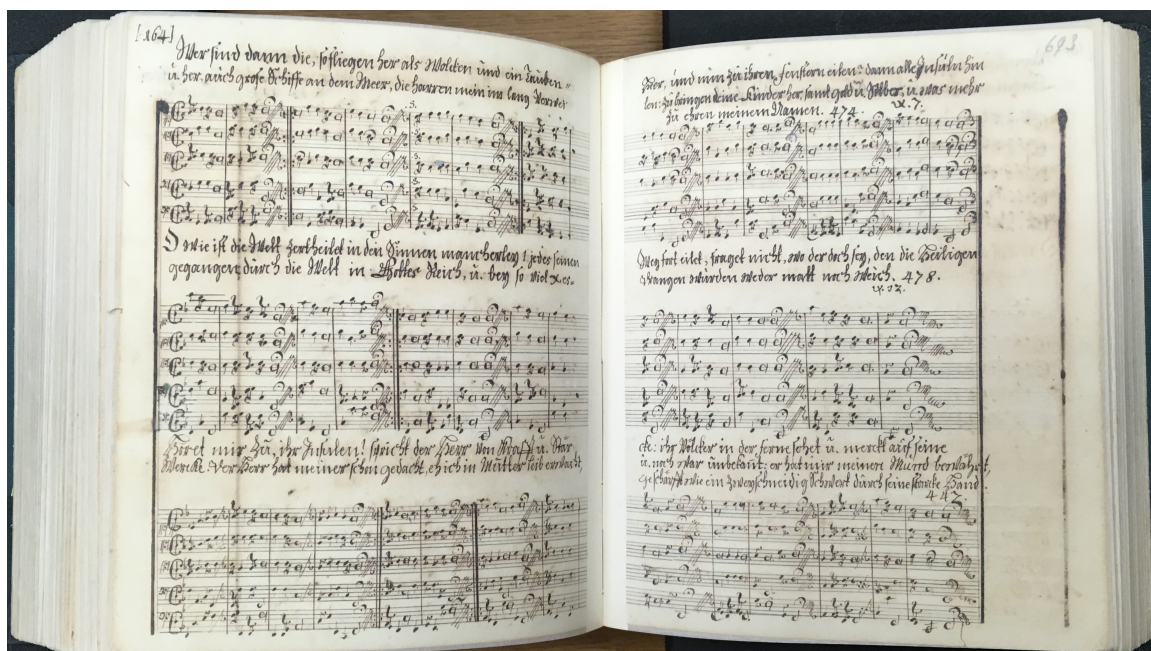 [164]
Wer sind dann die, so fliegen her als Wolcken und ein Tauben =
u. her, auch grose Schiffe an dem Meer, die harren mein im lang
O wie ist die Welt zertheilet in den Sinnen mancherley! jeder seinen
gegangen durch die Welt in Gottes Reich, u. bey so viel
Höret mir zu, ihr Insulen! spricht der Herr von u.
Wercke. Der Herr hat meiner schon gedacht, eh ich in Mutter leib erwacht,
693
Heer, und nun zu ihren Fenstern eilen: dann alle Insuln hin
len: zu bringen deine Kinder her, samt gold u. Silber, u. was mehr
zu ehren meinem Namen. 474.
v. 7.
Weg fort eilet, fraget nicht, wo der doch sey, den die Heiligen
Wangen würden weder matt noch weich. 478.
v. 12.
cke: ihr Völcker in der ferne sehet u. merckt auf seine
u. noch war unbekant: er hat mir meinen Mund bewahret,
geschärfft wie ein zweyschneidig Schwert durch seine starcke Hand.
442.